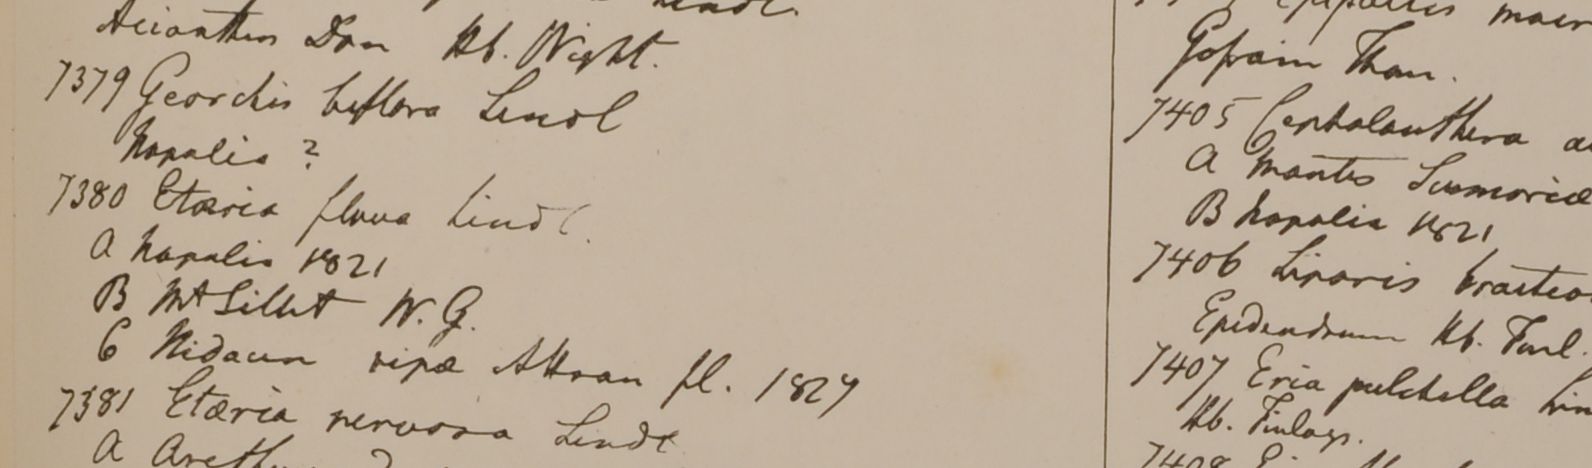 Lindl.
Acianthus Don Hb. Wight.
7379 Georchis biflora Lindl
Napalia ?
7380 Etæria flava Lindl.
A Napalia 1821
B Mt Sillet W. G.
C ripæ Attran fl. 1827
7381 Etæria nervosa Lindl
A
Epipactis
Govan
7405 Cephalanthera
A montes Sirmoriæ
B Napalia 1821
7406 Liparis
Epidendrum Hb. Finl.
7407 Eria pulchella
Hb. Finlays.
7408